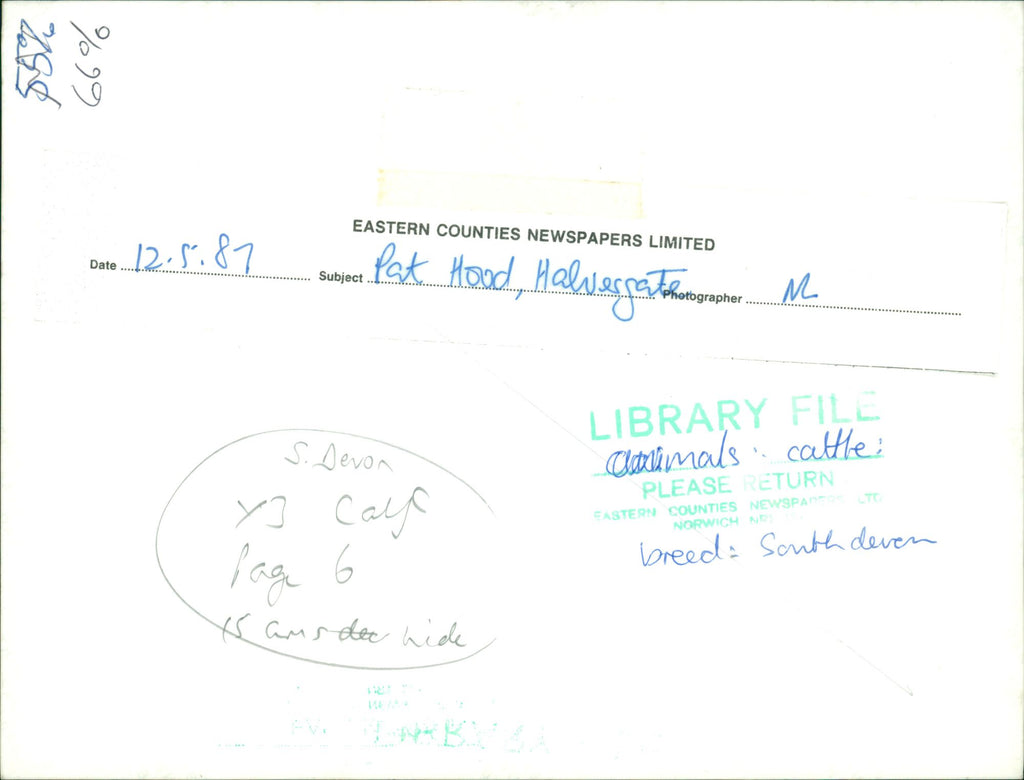 66%
EASTERN COUNTIES NEWSPAPERS LIMITED
Date 12.5.87 Subject Pat Hood, Halvergate Photographer
LIBRARY FILE
animals: cattle:
PLEASE RETURN
EASTERN COUNTIES NEWSPAPERS LTD
NORWICH
breed: South devon
S. Devon
X3 Calf
Page 6
15 cms wide